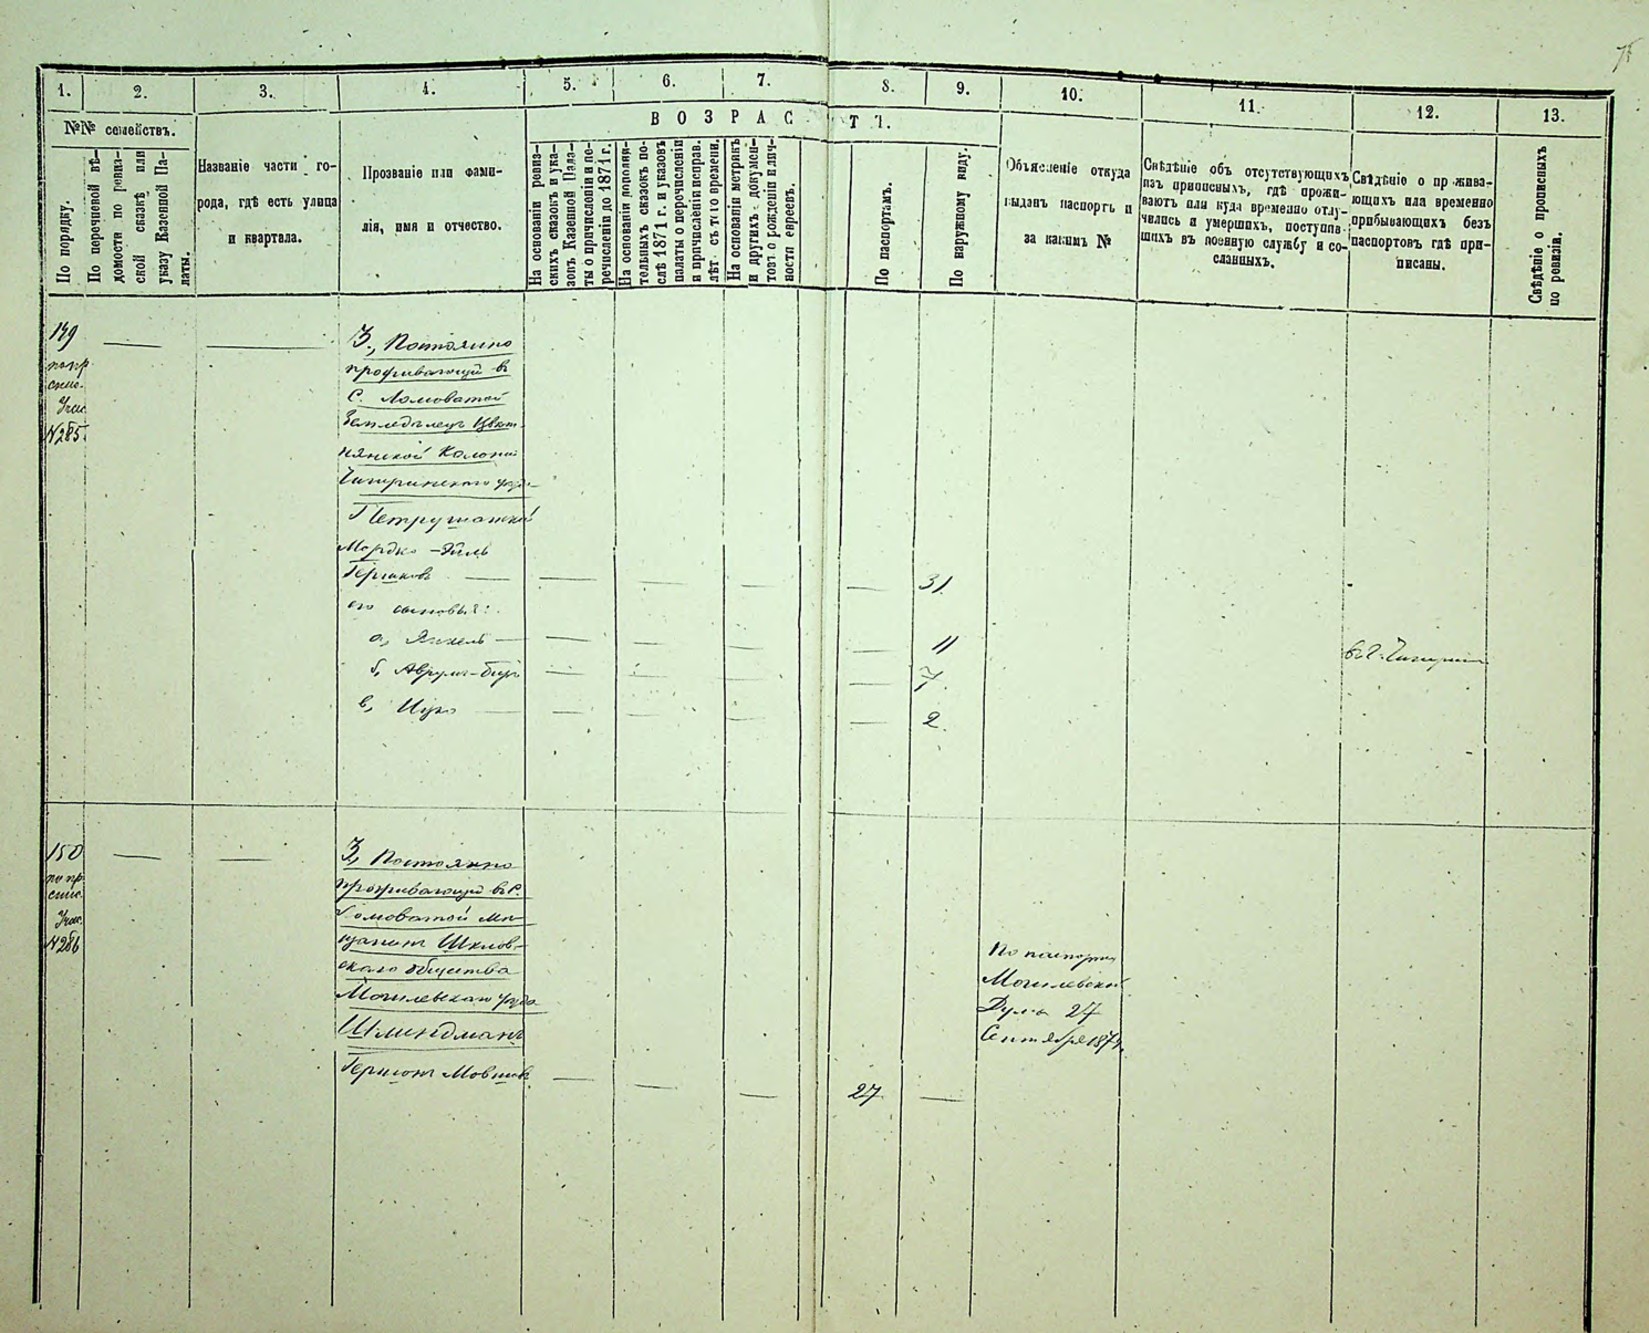 75
1. 2. 3. 4. 5. 6. 7. 8. 9. 10. 11. 12. 13.
№№ семействъ.
ВОЗРАСТЪ.
По порядку.
По перечневой вѣ-
домости по ревиз-
ской сказкѣ или
указу Казенной Па-
латы.
Названіе части го-
рода, гдѣ есть улица
и квартала.
Прозваніе или фами-
лія, имя и отчество.
На основаніи ревиз-
скихъ сказокъ и ука-
зовъ Казенной Пала-
ты о причисленіи и пе-
речисленіи до 1871 г.
На основаніи дополни-
тельныхъ сказокъ по-
слѣ 1871 г. и указовъ
палаты о перечисленіи
и причисленіи исправ.
лѣт. съ того времени.
На основаніи метрикъ
и другихъ докумен-
товъ о рожденіи и лич-
ности евреевъ.
По паспортамъ.
По наружному виду.
Объясненіе откуда
выданъ паспортъ и
за какимъ №
Свѣдѣніе объ отсутствующихъ
изъ приписныхъ, гдѣ прожи-
ваютъ или куда временно отлу-
чились и умершихъ, поступив-
шихъ въ военную службу и со-
сланныхъ.
Свѣдѣніе о прожива-
ющихъ или временно
прибывающихъ безъ
паспортовъ гдѣ при-
писаны.
Свѣдѣніе о прописныхъ
по ревизіи.
149
по пр
спис.
Учас.
№285.
3, Постоянно
проживающій въ
С. Ломоватой
Земледѣлецъ Цвѣт-
нянской Колоніи
Чигиринскаго уезда
Петрушанскій
Мордко-
Гершковъ 31
его сыновья:
а, Янкель 11
въ г. Чигирин
б, Аврумъ- 7.
в, Ицко 2.
150
по пр
спис.
Учас.
№286
3, Постоянно
проживающій въ С.
Ломоватой Мѣ-
щанинъ Шклов-
скаго общества
Могилевскаго уезда
Шлиндманъ
Гершонъ Мовшов 27
По паспорту
Могилевской
Думы 27
Сентября 187